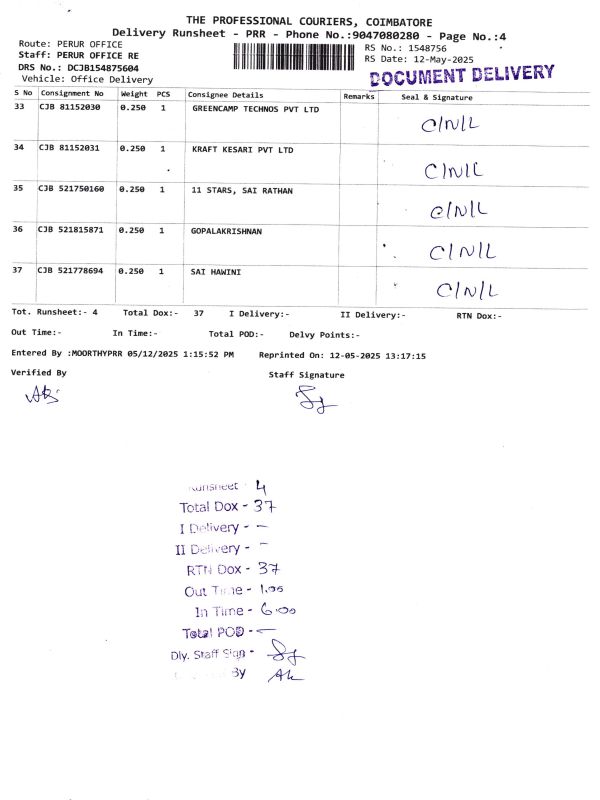 THE PROFESSIONAL COURIERS, COIMBATORE
Delivery Runsheet - PRR - Phone No.:9047080280 - Page No.:4
Route: PERUR OFFICE
RS No.: 1548756
Staff: PERUR OFFICE RE
RS Date: 12-May-2025
DRS No.: DCJB154875604
DOCUMENT DELIVERY
Vehicle: Office Delivery
S No Consignment No Weight PCS Consignee Details Remarks Seal & Signature
33 CJB 81152030 0.250 1 GREENCAMP TECHNOS PVT LTD C/N/L
34 CJB 81152031 0.250 1 KRAFT KESARI PVT LTD C/N/L
35 CJB 521750160 0.250 1 11 STARS, SAI RATHAN C/N/L
36 CJB 521815871 0.250 1 GOPALAKRISHNAN C/N/L
37 CJB 521778694 0.250 1 SAI HAWINI C/N/L
Tot. Runsheet:- 4 Total Dox:- 37 I Delivery:- II Delivery:- RTN Dox:-
Out Time:- In Time:- Total POD:- Delvy Points:-
Entered By :MOORTHYPRR 05/12/2025 1:15:52 PM Reprinted On: 12-05-2025 13:17:15
Verified By Staff Signature
Runsheet - 4
Total Dox - 37
I Delivery - -
II Delivery - -
RTN Dox - 37
Out Time - 1.00
In Time - 6.00
Total POD - -
Dly. Staff Sign -
By